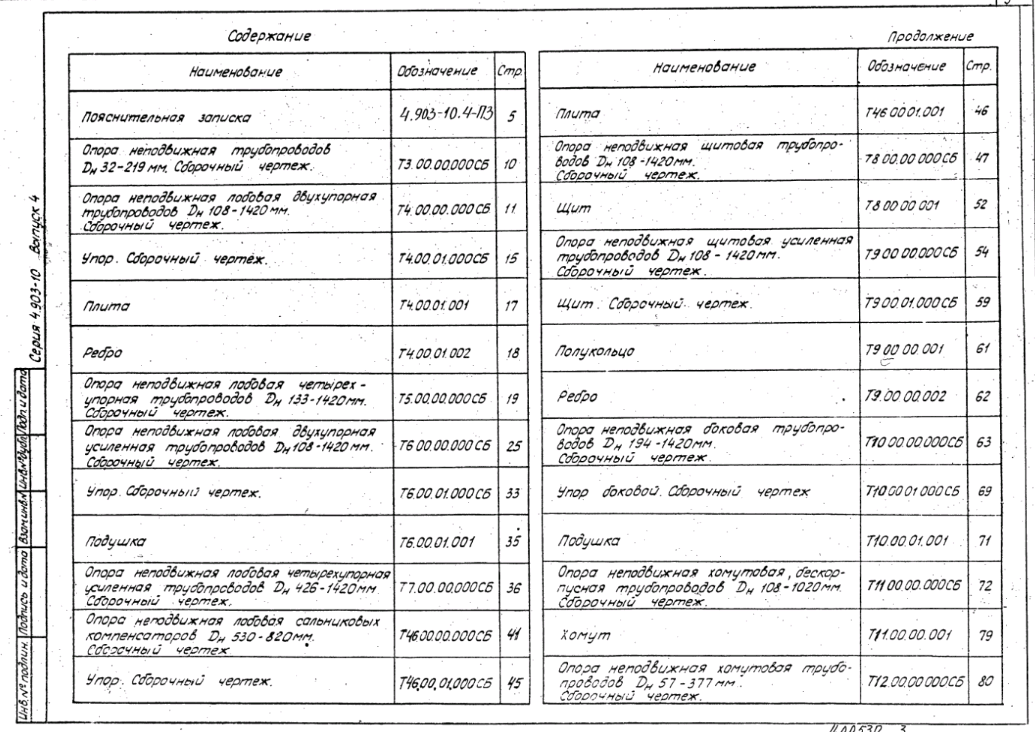 Содержание
Наименование Обозначение Стр.
Пояснительная записка 4.903-10.4-ПЗ 5
Опора неподвижная трубопроводов
Dн 32-219 мм. Сборочный чертеж. Т3.00.00.000СБ 10
Опора неподвижная лобовая двухупорная
трубопроводов Dн 108-1420 мм.
Сборочный чертеж. Т4.00.00.000СБ 11
Упор. Сборочный чертеж. Т4.00.01.000СБ 15
Плита Т4.00.01.001 17
Ребро Т4.00.01.002 18
Опора неподвижная лобовая четырех-
упорная трубопроводов Dн 133-1420мм.
Сборочный чертеж. Т5.00.00.000СБ 19
Опора неподвижная лобовая двухупорная
усиленная трубопроводов Dн 108-1420 мм.
Сборочный чертеж. Т6.00.00.000СБ 25
Упор. Сборочный чертеж. Т6.00.01.000СБ 33
Подушка Т6.00.01.001 35
Опора неподвижная лобовая четырехупорная
усиленная трубопроводов Dн 426-1420мм.
Сборочный чертеж. Т7.00.00.000СБ 36
Опора неподвижная лобовая сальниковых
компенсаторов Dн 530-820мм.
Сборочный чертеж Т46.00.00.000СБ 41
Упор. Сборочный чертеж. Т46.00.01.000СБ 45
Продолжение
Наименование Обозначение Стр.
Плита Т46 00 01.001 46
Опора неподвижная щитовая трубопро-
водов Dн 108-1420мм.
Сборочный чертеж. Т8 00.00 000СБ 47
Щит Т8 00 00 001 52
Опора неподвижная щитовая усиленная
трубопроводов Dн 108-1420мм.
Сборочный чертеж. Т9 00 00.000СБ 54
Щит. Сборочный чертеж. Т9 00 01.000СБ 59
Полукольцо Т9 00 00 001 61
Ребро Т9.00.00.002 62
Опора неподвижная боковая трубопро-
водов Dн 194-1420мм.
Сборочный чертеж. Т10 00 00 000СБ 63
Упор боковой. Сборочный чертеж Т10 00 01 000СБ 69
Подушка Т10.00 01.001 71
Опора неподвижная хомутовая, бескор-
пусная трубопроводов Dн 108-1020мм.
Сборочный чертеж. Т11 00.00.000СБ 72
Хомут Т11.00.00.001 79
Опора неподвижная хомутовая трубо-
проводов Dн 57-377мм.
Сборочный чертеж. Т12.00.00 000СБ 80
Серия 4.903-10 Выпуск 4
Инв.№ подлин. Подпись и дата Взам.инв.№ Инв.№ дубл. Подп. и дата